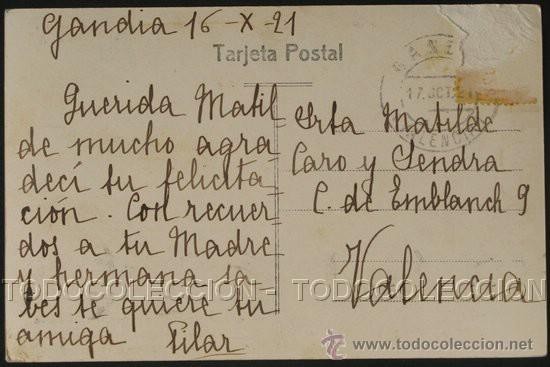 Gandia 16-X-21
Tarjeta Postal
Querida Matil
de mucho agra
decí tu felicita
ción. Con recuer
dos a tu Madre
y hermana sa
bes te quiere tu
amiga Pilar
Srta Matilde
Caro y Sendra
C. de Emblanch 9
Valencia
17 OCT 21
VALENCIA
TODOCOLECCION - TODOCOLECCION - TODOCOLECCION
todocoleccion.net